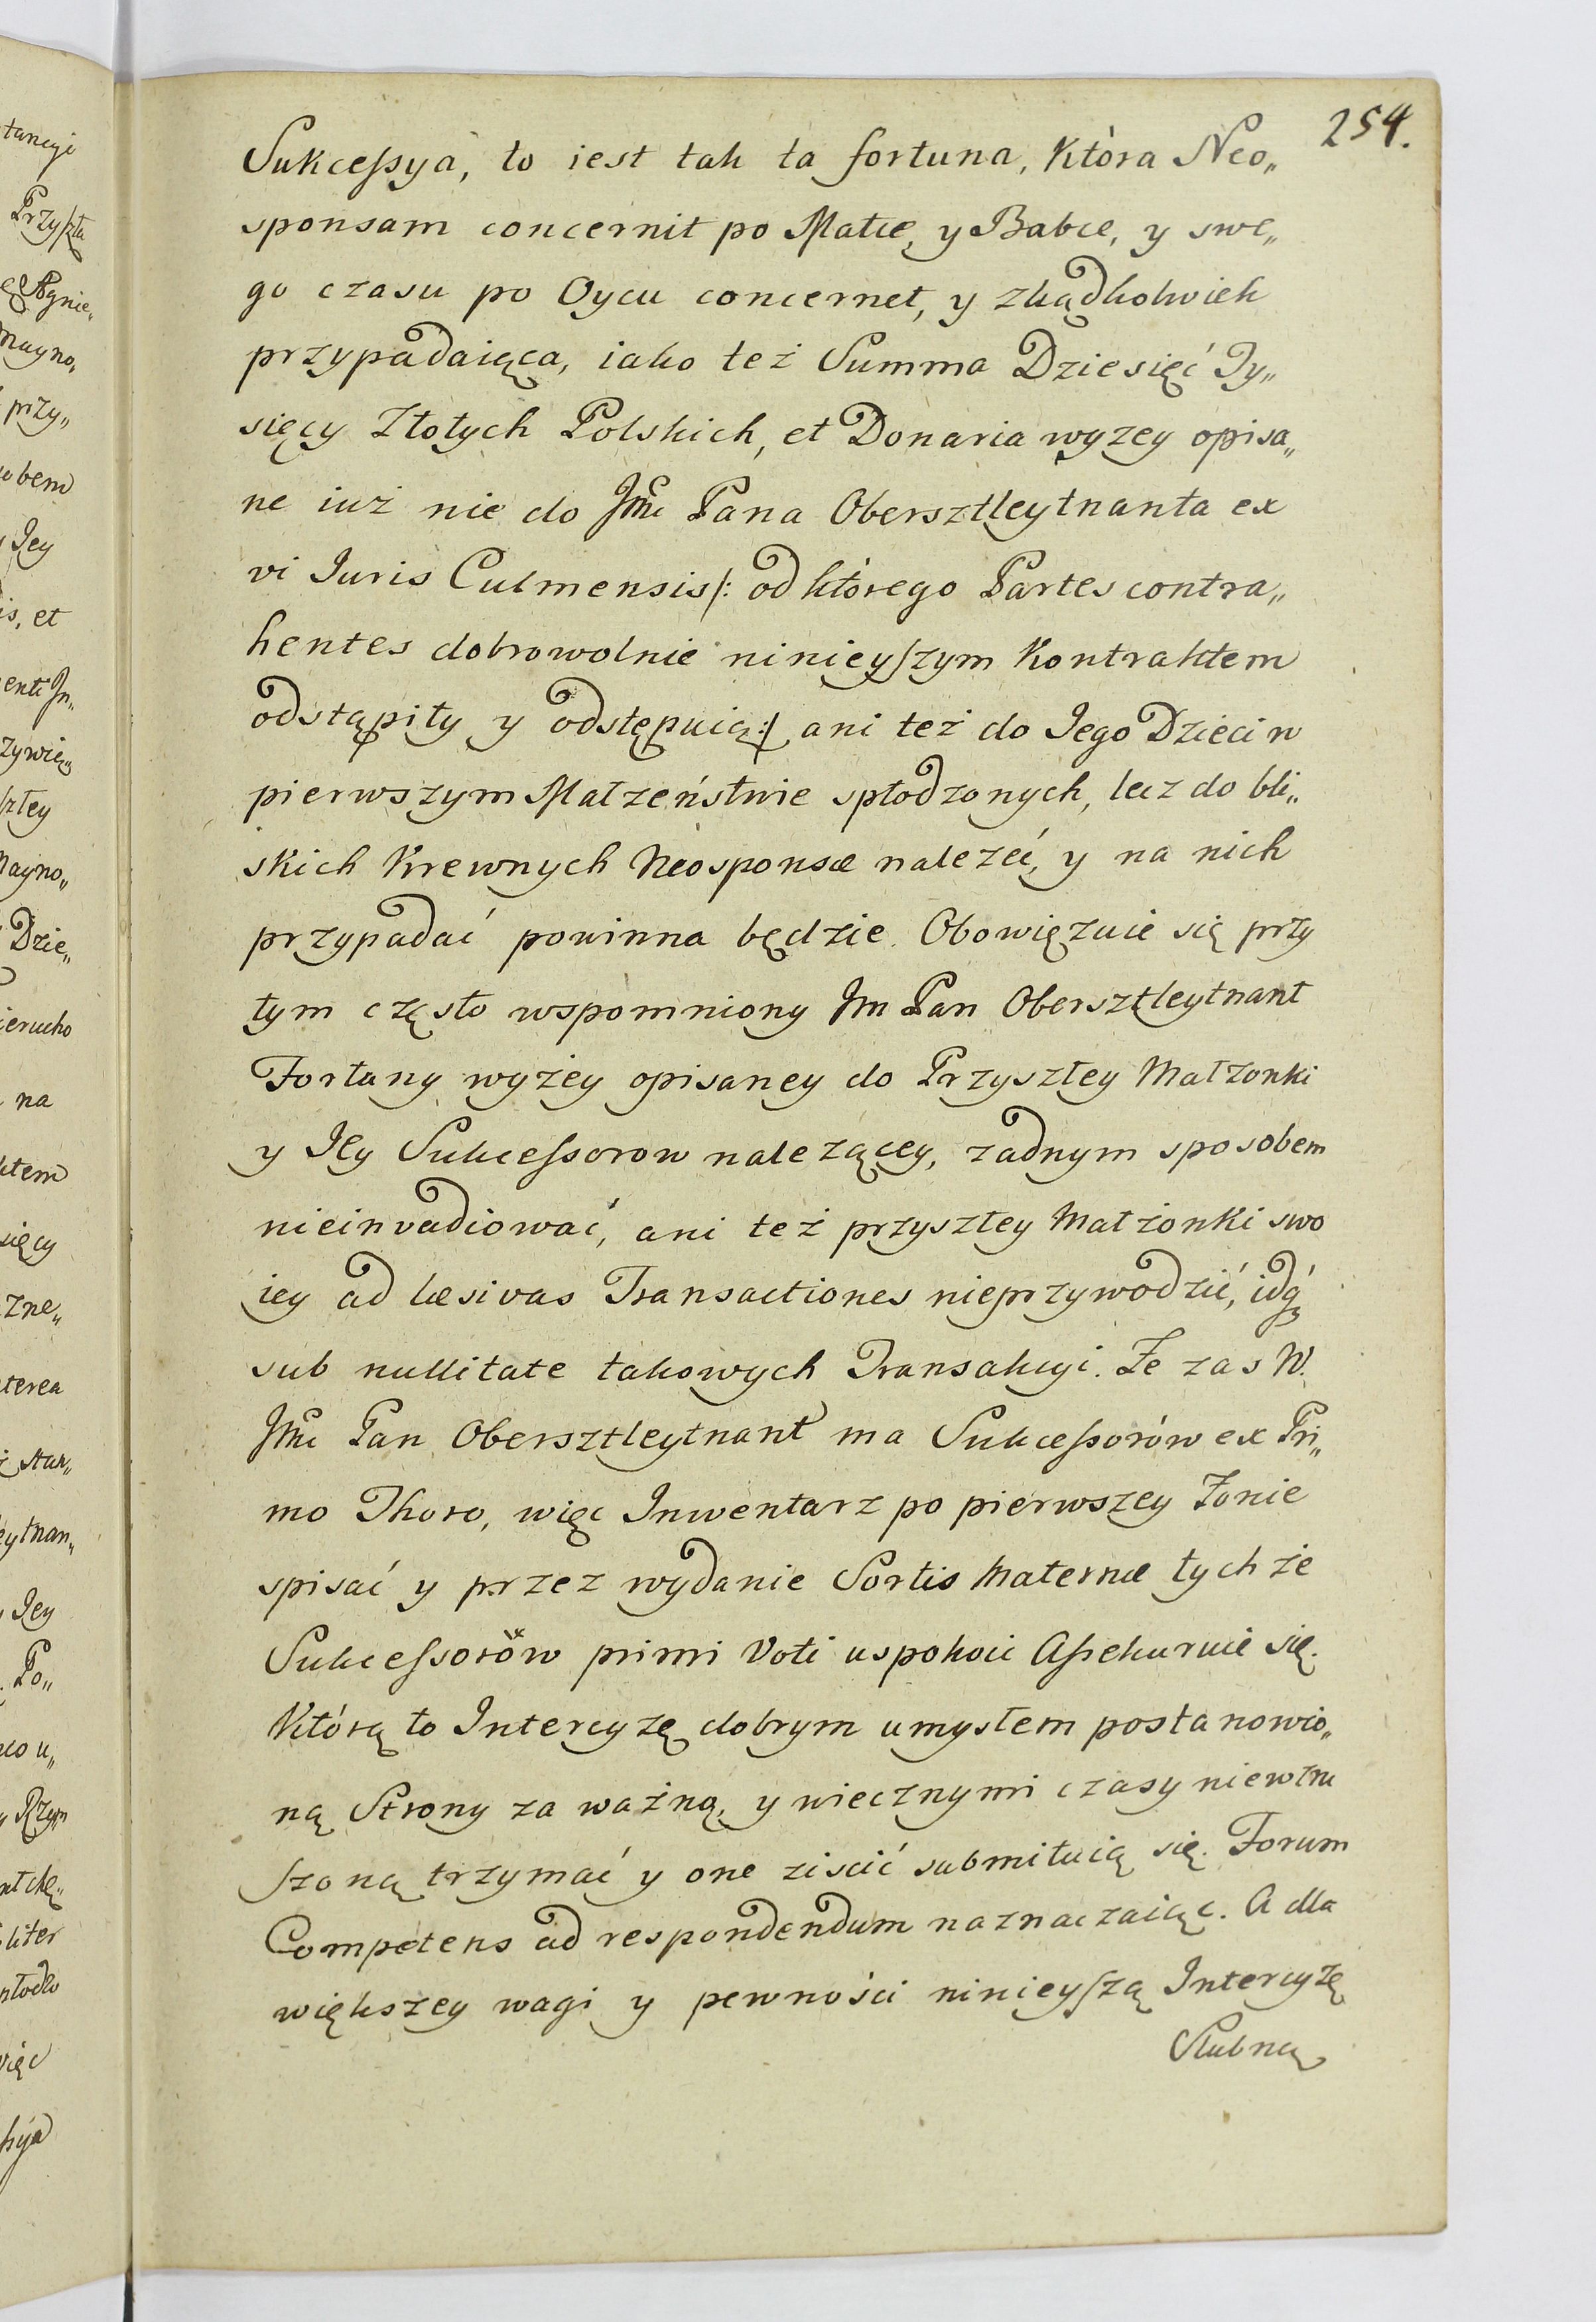 254.
Sukcessya, to iest tak ta fortuna, Która Neo„
sponsam concernit po Matce, y Babce, y swe„
go czasu po Oycu concernet, y zkądkolwiek
przypadaiąca, iako też Summa Dziesięć Ty„
sięcy Złotych Polskich, et Donaria wyzey opisa„
ne iuż nie do Jmć Pana Obersztleytnanta ex
vi Iuris Culmensis /: od którego Partes contra„
hentes dobrowolnie ninieyszym Kontraktem
odstąpiły y odstępuią :/ ani też do Iego Dzieci w
pierwszym Małżeństwie spłodzonych, lecz do bli„
skich Krewnych Neosponsæ nalezeć, y na nich
przypadać powinna będzie. Obowięzuie się przy
tym często wspomniony Jm Pan Obersztleytnant
Fortuny wyżey opisaney do Przyszłey Małzonki
y Iey Sukcessorow nalezącey, zadnym sposobem
nieinvadiować, ani też przyszłey Małżonki swo
iey ad læsivas Transactiones nieprzywodzić, idq́
sub nullitate takowych Transakcyi. Ze zas W.
Jmć Pan Obersztleytnant ma Sukcessorów ex Pri„
mo Thoro, więc Inwentarz po pierwszey Zonie
spisać y przez wydanie Sortis Maternæ tychże
Sukcessorów primi Voti uspokoić Assekuruie się.
Którą to Intercyzę dobrym umysłem postanowio„
ną Strony za ważną, y wiecznymi czasy niewzru
szoną trzymać y one ziscić submituią się. Forum
Competens ad respondendum naznaczaiąc. A dla
większey wagi y pewności ninieyszą Intercyzę
Slubną